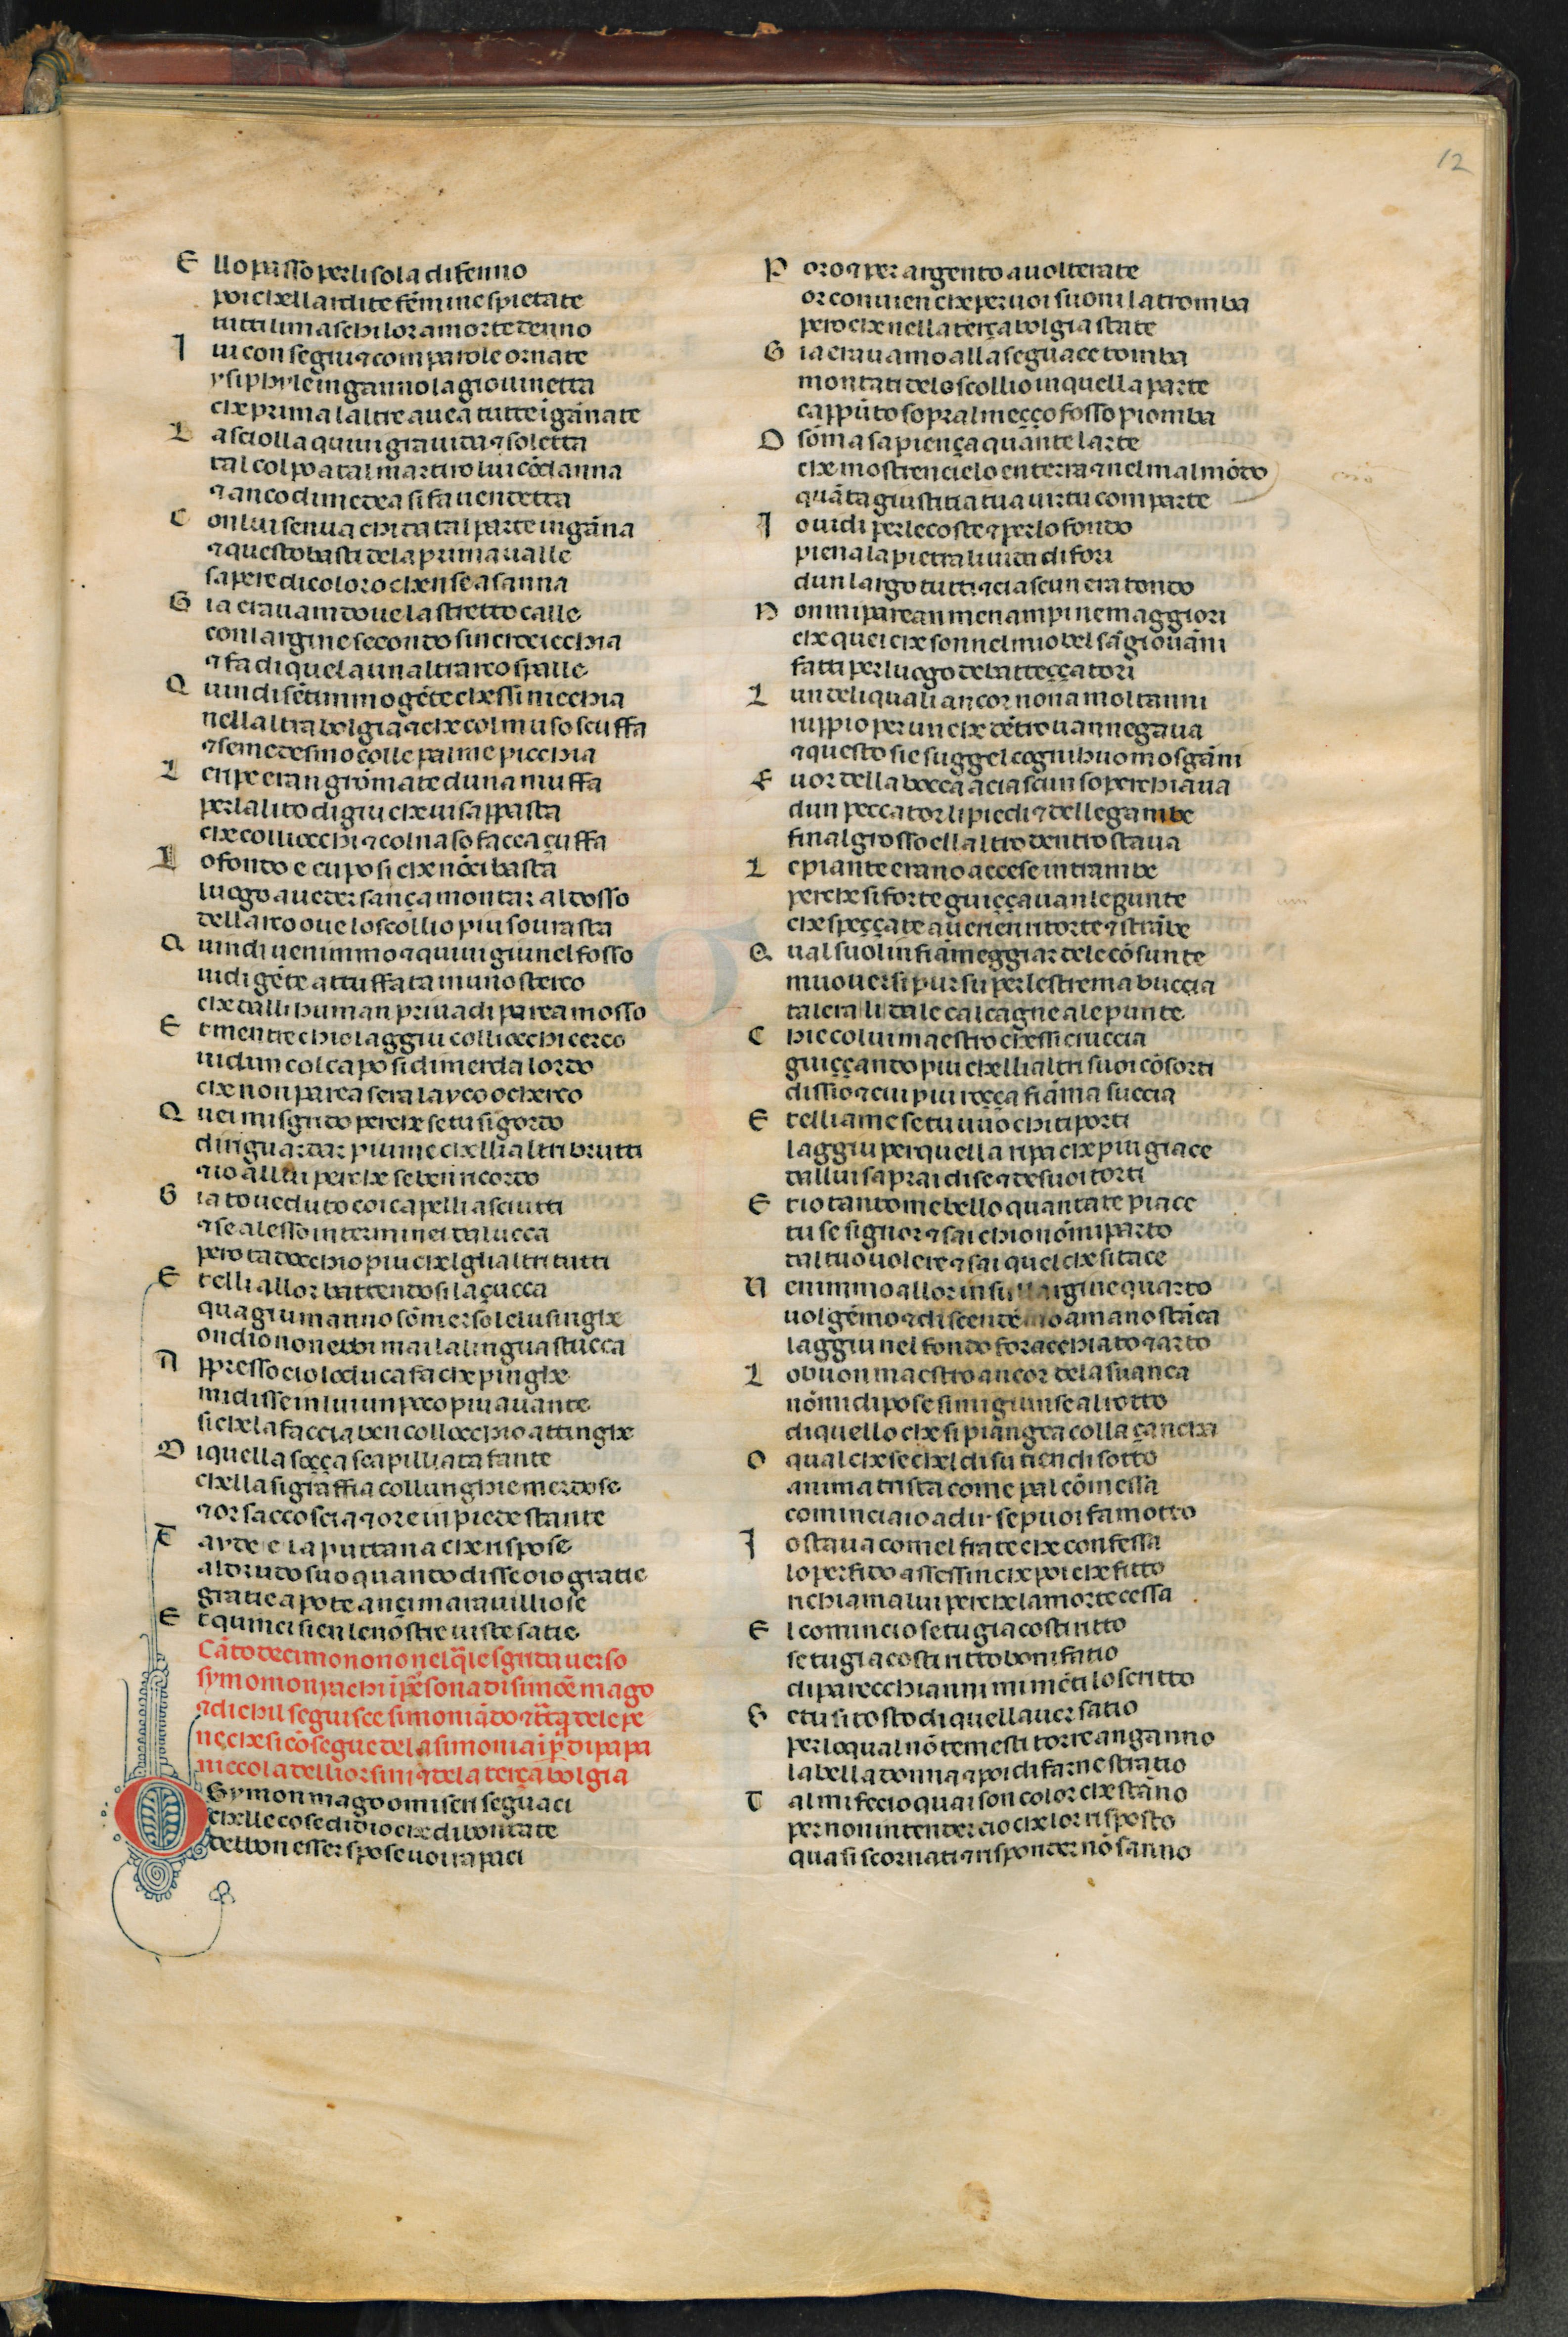 12
E llo passo per lisola di lenno
poi chellardite femine spietate
tutti li maschi lor a morte denno
I ui con segni ⁊ com parole ornate
ysiphyle inganno la giouinetta
che prima laltre auea tutte i gānate
L asciolla quiui grauida ⁊ soletta
tal colpa a tal martiro lui cōdanna
⁊ anco di medea si fa uendetta
C on lui senua chi da tal parte ingāna
⁊ questo basti de la prima ualle
sapere di coloro chen se assanna
G ia erauam doue lo stretto calle
con largine secondo sincrocicchia
⁊ fa di quel a un altrarco spalle
Q uindi sētimmo gēte chessi nicchia
nellaltra bolgia ⁊ che col muso scuffa
⁊ se medesmo colle palme picchia
L e ripe eran grōmate duna muffa
per lalito di giu che uisappasta
che colliocchi ⁊ col naso facea çuffa
L o fondo e cupo si che nō ci basta
luogo aueder sança montar al dosso
dellarco oue lo scollio piu sourasta
Q uindi uenimmo ⁊ quiui giu nel fosso
uidi gēte attuffata in uno sterco
che dalli human priuadi parea mosso
E t mentre chio laggiu collocchi cerco
uidi un col capo si di merda lordo
che non parea sera layco o cherco
Q uei mi sgrido perche se tu si gordo
di riguardar piu me chelli altri brutti
⁊ io allui perche se ben ricordo
G ia to ueduto coi capelli asciutti
⁊ se alesso interminei da lucca
pero tadocchio piu chelgli altri tutti
E t elli allor battendosi la çucca
qua giu manno sōmerso le lusinghe
ondio non ebbi mai la lingua stucca
A ppresso cio lo duca fa che pinghe
mi disse il uiso un poco piu auante
si che la faccia ben collocchio attinghe
D i quella soçça scapilliata fante
chella si graffia collunghie merdose
⁊ or saccoscia ⁊ ore in piede stante
T ayde e la puttana che rispose
al drudo suo quando disse o io gratie
gratie apo te ançi marauilliose
E t quinci sien le nostre uiste satie
Cāto decimonono nel q̄le sgrida uerso
symomoniachi ī p̄sona di simōe mago
⁊ di chil seguisce simoniādo ⁊ tc̄a dele pe
ne che si cōsegue de la simonia ī p̄ di papa
niccola delliorsini ⁊ dela terça bolgia
O Symon mago o miseri seguaci
chelle cose di dio che di bontate
debbon esser spose uoi rapaci
P or oro ⁊ per argento auolterate
or conuien che per uoi suoni la tromba
pero che nella terça bolgia state
G ia erauamo alla seguace tomba
montati de lo scollio in quella parte
cappūto sopral meçço fosso piomba
O sōma sapiença quante larte
che mostren cielo en terra ⁊ nel mal mōdo
quāta giustitia tua uirtu comparte
I o uidi per le coste ⁊ per lo fondo
piena la pietra liuida di fori
dun largo tutti ⁊ ciascun era tondo
N on mi parean men ampi ne maggiori
che quei che son nel mio bel sā giouāni
fatti per luogo de batteççatori
L un deli quali ancor non a moltanni
ruppio per un che dētro uannegaua
⁊ questo sie suggel cogni huomo sgāni
F uor della bocca a ciascun soperchiaua
dun peccator li piedi ⁊ delle gambe
final grosso ellaltro dentro staua
L e piante erano accese intrambe
perche si forte guiççauan le giunte
che speççate auerien ritorte ⁊ strābe
Q ual suol in fiameggiar dele cōsunte
muouersi pur su per lestrema buccia
tal era li dale calcagne ale punte
C hie colui maestro chessi cruccia
guiççando piu chelli altri suoi cōsorti
dissio ⁊ cui piu roçça fiāma succia
E t elli a me se tu uuo chi ti porti
laggiu per quella ripa che piu giace
dallui saprai di se ⁊ de suoi torti
E t io tanto me bello quanta te piace
tu se signor ⁊ sai chio nō mi parto
dal tuo uolere ⁊ sai quel che si tace
U enimmo allor in su llargine quarto
uolgēmo ⁊ discendēmo a mano stāca
laggiu nel fondo foracchiato ⁊ arto
L o buon maestro ancor dela suanca
nō mi dipose si mi giunse al rotto
di quello che si piāngea colla çanca
O qual che se chel di su tien di sotto
anima trista come pal cōmessa
cominciaio a dir se puoi fa motto
I o staua comel frate che confessa
lo perfido assessin che poi che fitto
richiama lui perche la morte cessa
E l comincio se tu gia costi ritto
se tu gia costi ritto bonifatio
di parecchi anni mi mēti lo scritto
S e tu si tosto di quell auer satio
per lo qual nō temesti torre a nganno
la bella donna ⁊ poi di farne stratio
T al mi fecio quai son color che stāno
per non intender cio che lor risposto
quasi scornati ⁊ risponder nō sanno